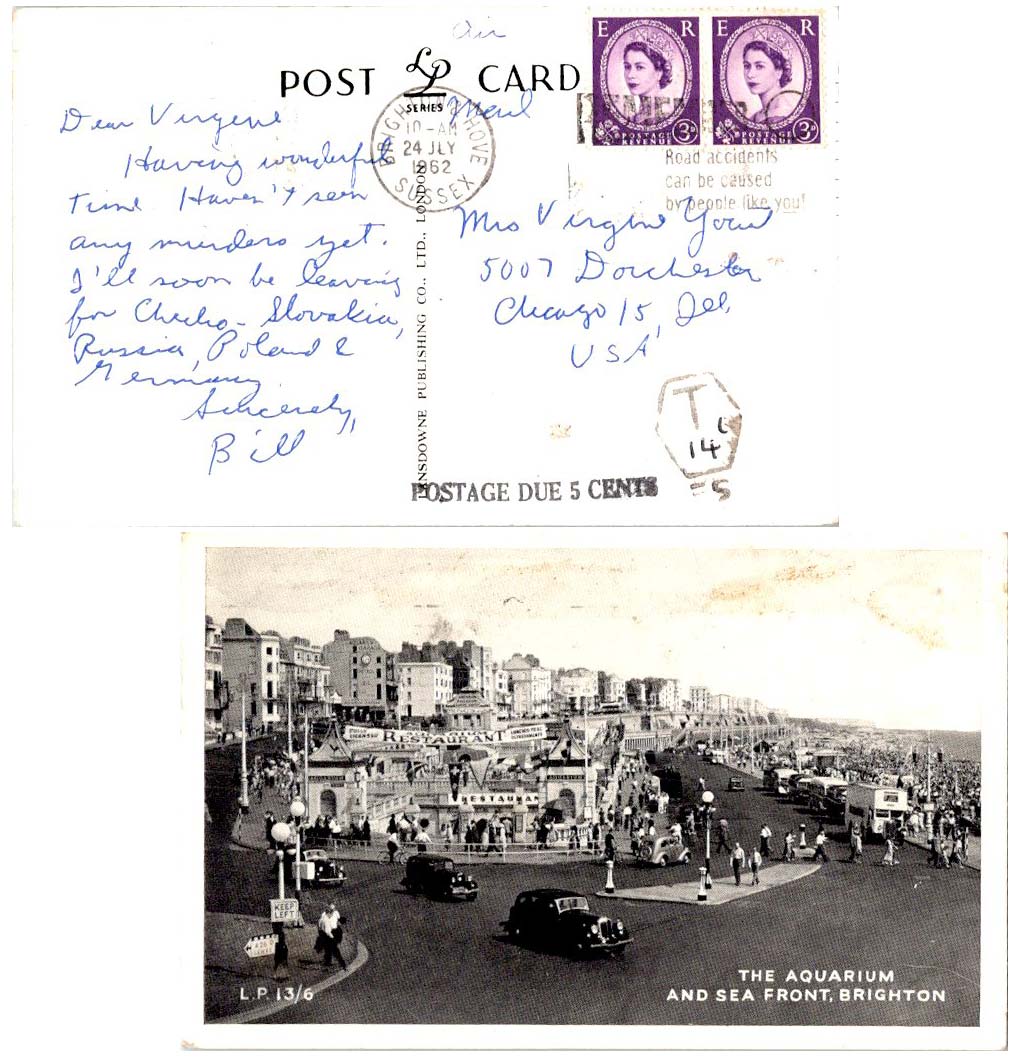 Air
Mail
POST LP CARD
SERIES
E R
E R
POSTAGE REVENUE 3D
POSTAGE REVENUE 3D
BRIGHTON & HOVE
10-AM
24 JLY
1962
SUSSEX
REMEMBER
Road accidents
can be caused
by people like you!
Dear Virgene
Having wonderful
time Haven't seen
any murders yet.
I'll soon be leaving
for Checko-Slovakia,
Russia, Poland &
Germany
Sincerely,
Bill
LANSDOWNE PUBLISHING CO., LTD., LONDON
Mrs Virgene
5007 Dorchester
Chicago 15, Ill,
USA
T
14
POSTAGE DUE 5 CENTS
=5
FULLY LICENSED RESTAURANT
RESTAURANT
KEEP LEFT
L.P. 13/6
THE AQUARIUM
AND SEA FRONT, BRIGHTON